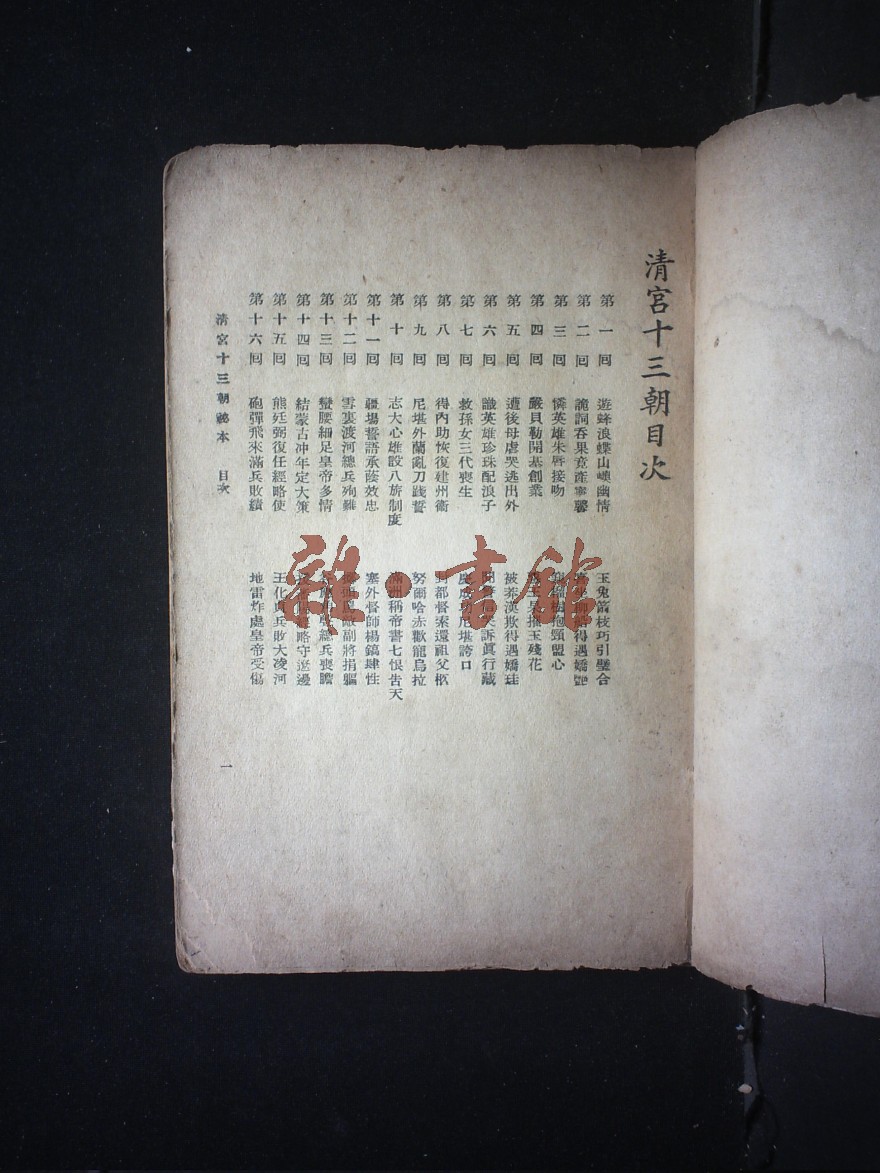 清宮十三朝目次
第一回 遊蜂浪蝶山嶼幽情 玉兔窩枝巧引璧合
第二回 詭詞吞果竟產寧馨 得遇嬌艷
第三回 憐英雄朱唇接吻 抱頸盟心
第四回 嚴貝勒開基創業 玉殘花
第五回 遭後母虐哭逃出外 被莽漢欺得遇嬌珪
第六回 識英雄珍珠配浪子 訴眞行藏
第七回 救孫女三代喪生 尼堪誇口
第八回 得內助恢復建州衛 都督索還祖父柩
第九回 尼堪外蘭亂刀踐誓 努爾哈赤歡寵烏拉
第十回 志大心雄設八旂制度 滿洲稱帝書七恨告天
第十一回 疆場誓語承蔭效忠 塞外督師楊鎬肆性
第十二回 雪裏渡河總兵殉難 副將捐軀
第十三回 蠻腰細足皇帝多情 總兵喪膽
第十四回 結蒙古冲年定大策 經略守遼邊
第十五回 熊廷弼復任經略使 王化貞兵敗大凌河
第十六回 砲彈飛來滿兵敗績 地雷炸處皇帝受傷
清宮十三朝祕本 目次
一
雜·書館